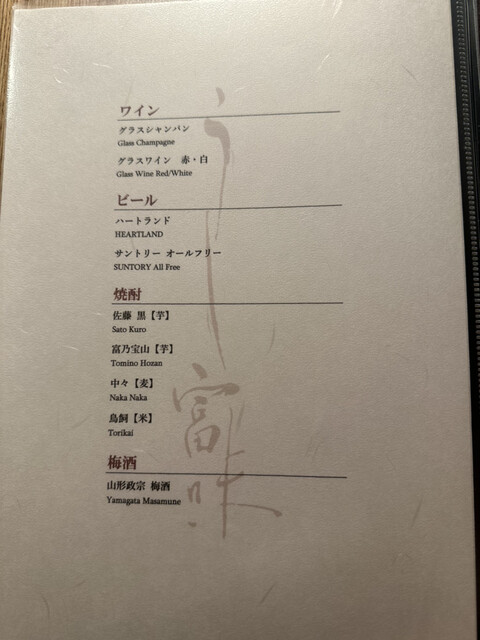 ワイン
グラスシャンパン
Glass Champagne
グラスワイン 赤・白
Glass Wine Red/White
ビール
ハートランド
HEARTLAND
サントリー オールフリー
SUNTORY All Free
焼酎
佐藤 黒【芋】
Sato Kuro
富乃宝山【芋】
Tomino Hozan
中々【麦】
Naka Naka
鳥飼【米】
Torikai
梅酒
山形政宗 梅酒
Yamagata Masamune